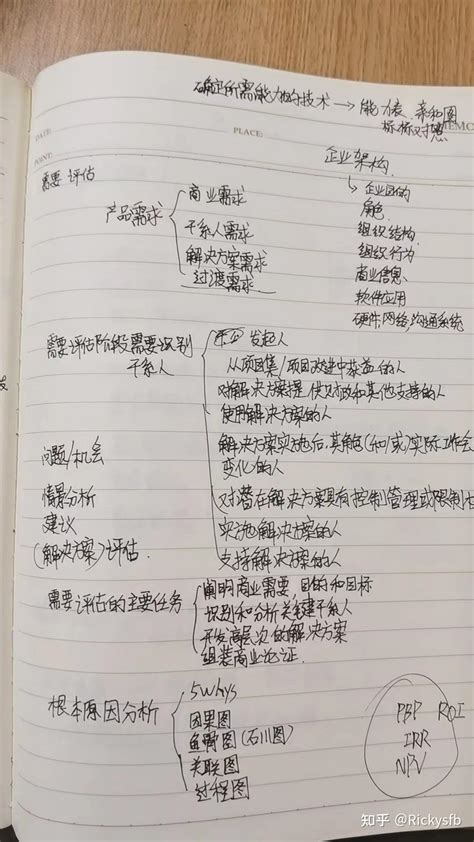 确定所需能力的技术 → 能力表 亲和图
标杆对照
MEMO
DATE:
PLACE:
POINT:
企业架构
需要评估
产品需求
商业需求
干系人需求
解决方案需求
过渡需求
企业目的
角色
组织结构
组织行为
商业信息
软件应用
硬件,网络,沟通系统
需要评估阶段需要识别
干系人
发起人
从项目集/项目改进中获益的人
对解决方案提供财政和其他支持的人
使用解决方案的人
解决方案实施后,其角色(和/或)实际工作会
变化的人
对潜在解决方案具有控制管理或限制
实施解决方案的人
支持解决方案的人
问题/机会
情景分析
建议
(解决方案)评估
需要评估的主要任务
阐明商业需要 目的和目标
识别和分析关键干系人
开发高层次的解决方案
组装商业论证
根本原因分析
5whys
因果图
鱼骨图(石川图)
关联图
过程图
PBP ROI
IRR
NPV
知乎 @Rickysfb